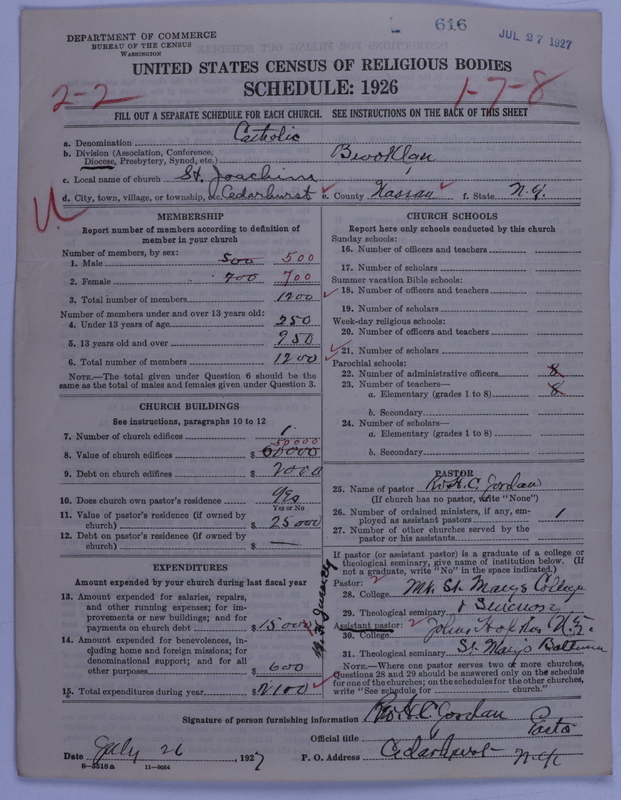 616
JUL 27 1927
DEPARTMENT OF COMMERCE
BUREAU OF THE CENSUS
WASHINGTON
UNITED STATES CENSUS OF RELIGIOUS BODIES
SCHEDULE: 1926
2-2
1-7-8
FILL OUT A SEPARATE SCHEDULE FOR EACH CHURCH. SEE INSTRUCTIONS ON THE BACK OF THIS SHEET
a. Denomination Catholic
b. Division (Association, Conference,
Diocese, Presbytery, Synod, etc.) Brooklyn
c. Local name of church St. Joachim
d. City, town, village, or township, etc. Cedarhurst e. County Nassau f. State N.Y.
U.
MEMBERSHIP
Report number of members according to definition of
member in your church
Number of members, by sex:
1. Male 500 500
2. Female 700 700
3. Total number of members 1200
Number of members under and over 13 years old:
4. Under 13 years of age 250
5. 13 years old and over 950
6. Total number of members 1200
NOTE.—The total given under Question 6 should be
the same as the total of males and females given under Question 3.
CHURCH BUILDINGS
See instructions, paragraphs 10 to 12
7. Number of church edifices 1
50000
8. Value of church edifices $
9. Debt on church edifices $ 2000
10. Does church own pastor's residence Yes
Yes or No
11. Value of pastor's residence (if owned by
church) $ 25000
12. Debt on pastor's residence (if owned by
church) $ —
EXPENDITURES
Amount expended by your church during last fiscal year
13. Amount expended for salaries, repairs,
and other running expenses; for im-
provements or new buildings; and for
payments on church debt $ 15000
14. Amount expended for benevolences, in-
cluding home and foreign missions; for
denominational support; and for all
other purposes $ 600
15. Total expenditures during year $ 2100
CHURCH SCHOOLS
Report here only schools conducted by this church
Sunday schools:
16. Number of officers and teachers
17. Number of scholars
Summer vacation Bible schools:
18. Number of officers and teachers
19. Number of scholars
Week-day religious schools:
20. Number of officers and teachers
21. Number of scholars
Parochial schools:
22. Number of administrative officers 8
23. Number of teachers—
a. Elementary (grades 1 to 8) 8
b. Secondary
24. Number of scholars—
a. Elementary (grades 1 to 8)
b. Secondary
PASTOR
25. Name of pastor Rev. H. C. Jordan
(If church has no pastor, write "None")
26. Number of ordained ministers, if any, em-
ployed as assistant pastors 1
27. Number of other churches served by the
pastor or his assistants
If pastor (or assistant pastor) is a graduate of a college or
theological seminary, give name of institution below. (If
not a graduate, write "No" in the space indicated.)
Pastor: 2
28. College Mt. St. Mary's College
29. Theological seminary + Seminary
Assistant pastor: 2
30. College Johns Hopkins
31. Theological seminary St. Mary's Baltimore
NOTE.—Where one pastor serves two or more churches,
Questions 28 and 29 should be answered only on the schedule
for one of the churches; on the schedules for the other churches,
write "See schedule for church."
Signature of person furnishing information Rev. H. C. Jordan
Official title Pastor
Date July 26, 1927 P. O. Address Cedarhurst N.Y.
8—5318a 11—9064